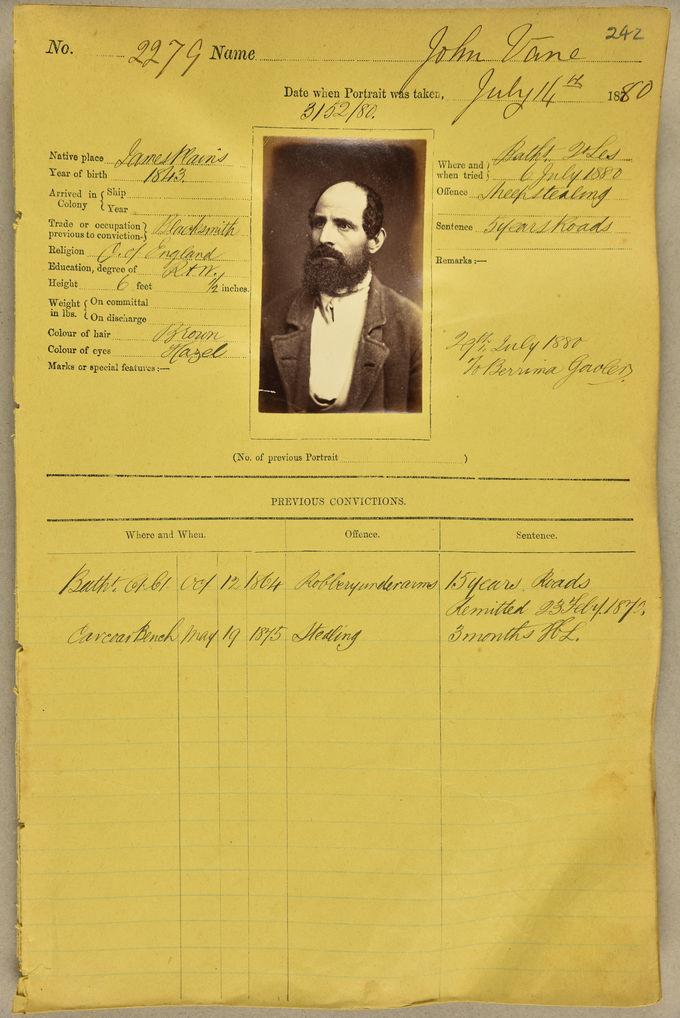 242
No. 2279 Name John Vane
Date when Portrait was taken, July 14th 1880
3152/80.
Native place James Plains
Year of birth 1843.
Arrived in Colony { Ship
Year
Trade or occupation previous to conviction } Blacksmith
Religion C. of England
Education, degree of R & W.
Height 6 feet ½ inches.
Weight in lbs. { On committal
On discharge
Colour of hair Brown
Colour of eyes Hazel
Marks or special features:—
Where and when tried } Batht. Q Ses
6 July 1880
Offence Sheepstealing
Sentence 5 years Roads
Remarks:—
29th July 1880
To Berrima Gaol
(No. of previous Portrait )
PREVIOUS CONVICTIONS.
Where and When. Offence. Sentence.
Batht. Ct Ct Oct 12 1864 Robbery under arms 15 years Roads
Remitted 23 Feby
Carcoar Bench May 19 1875 Stealing 3 months H.L.